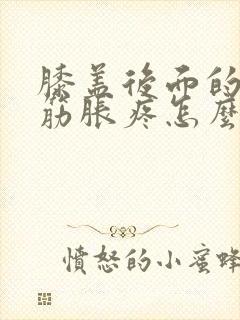 膝盖後面的
筋脹疼怎麼
憤怒的小蜜蜂